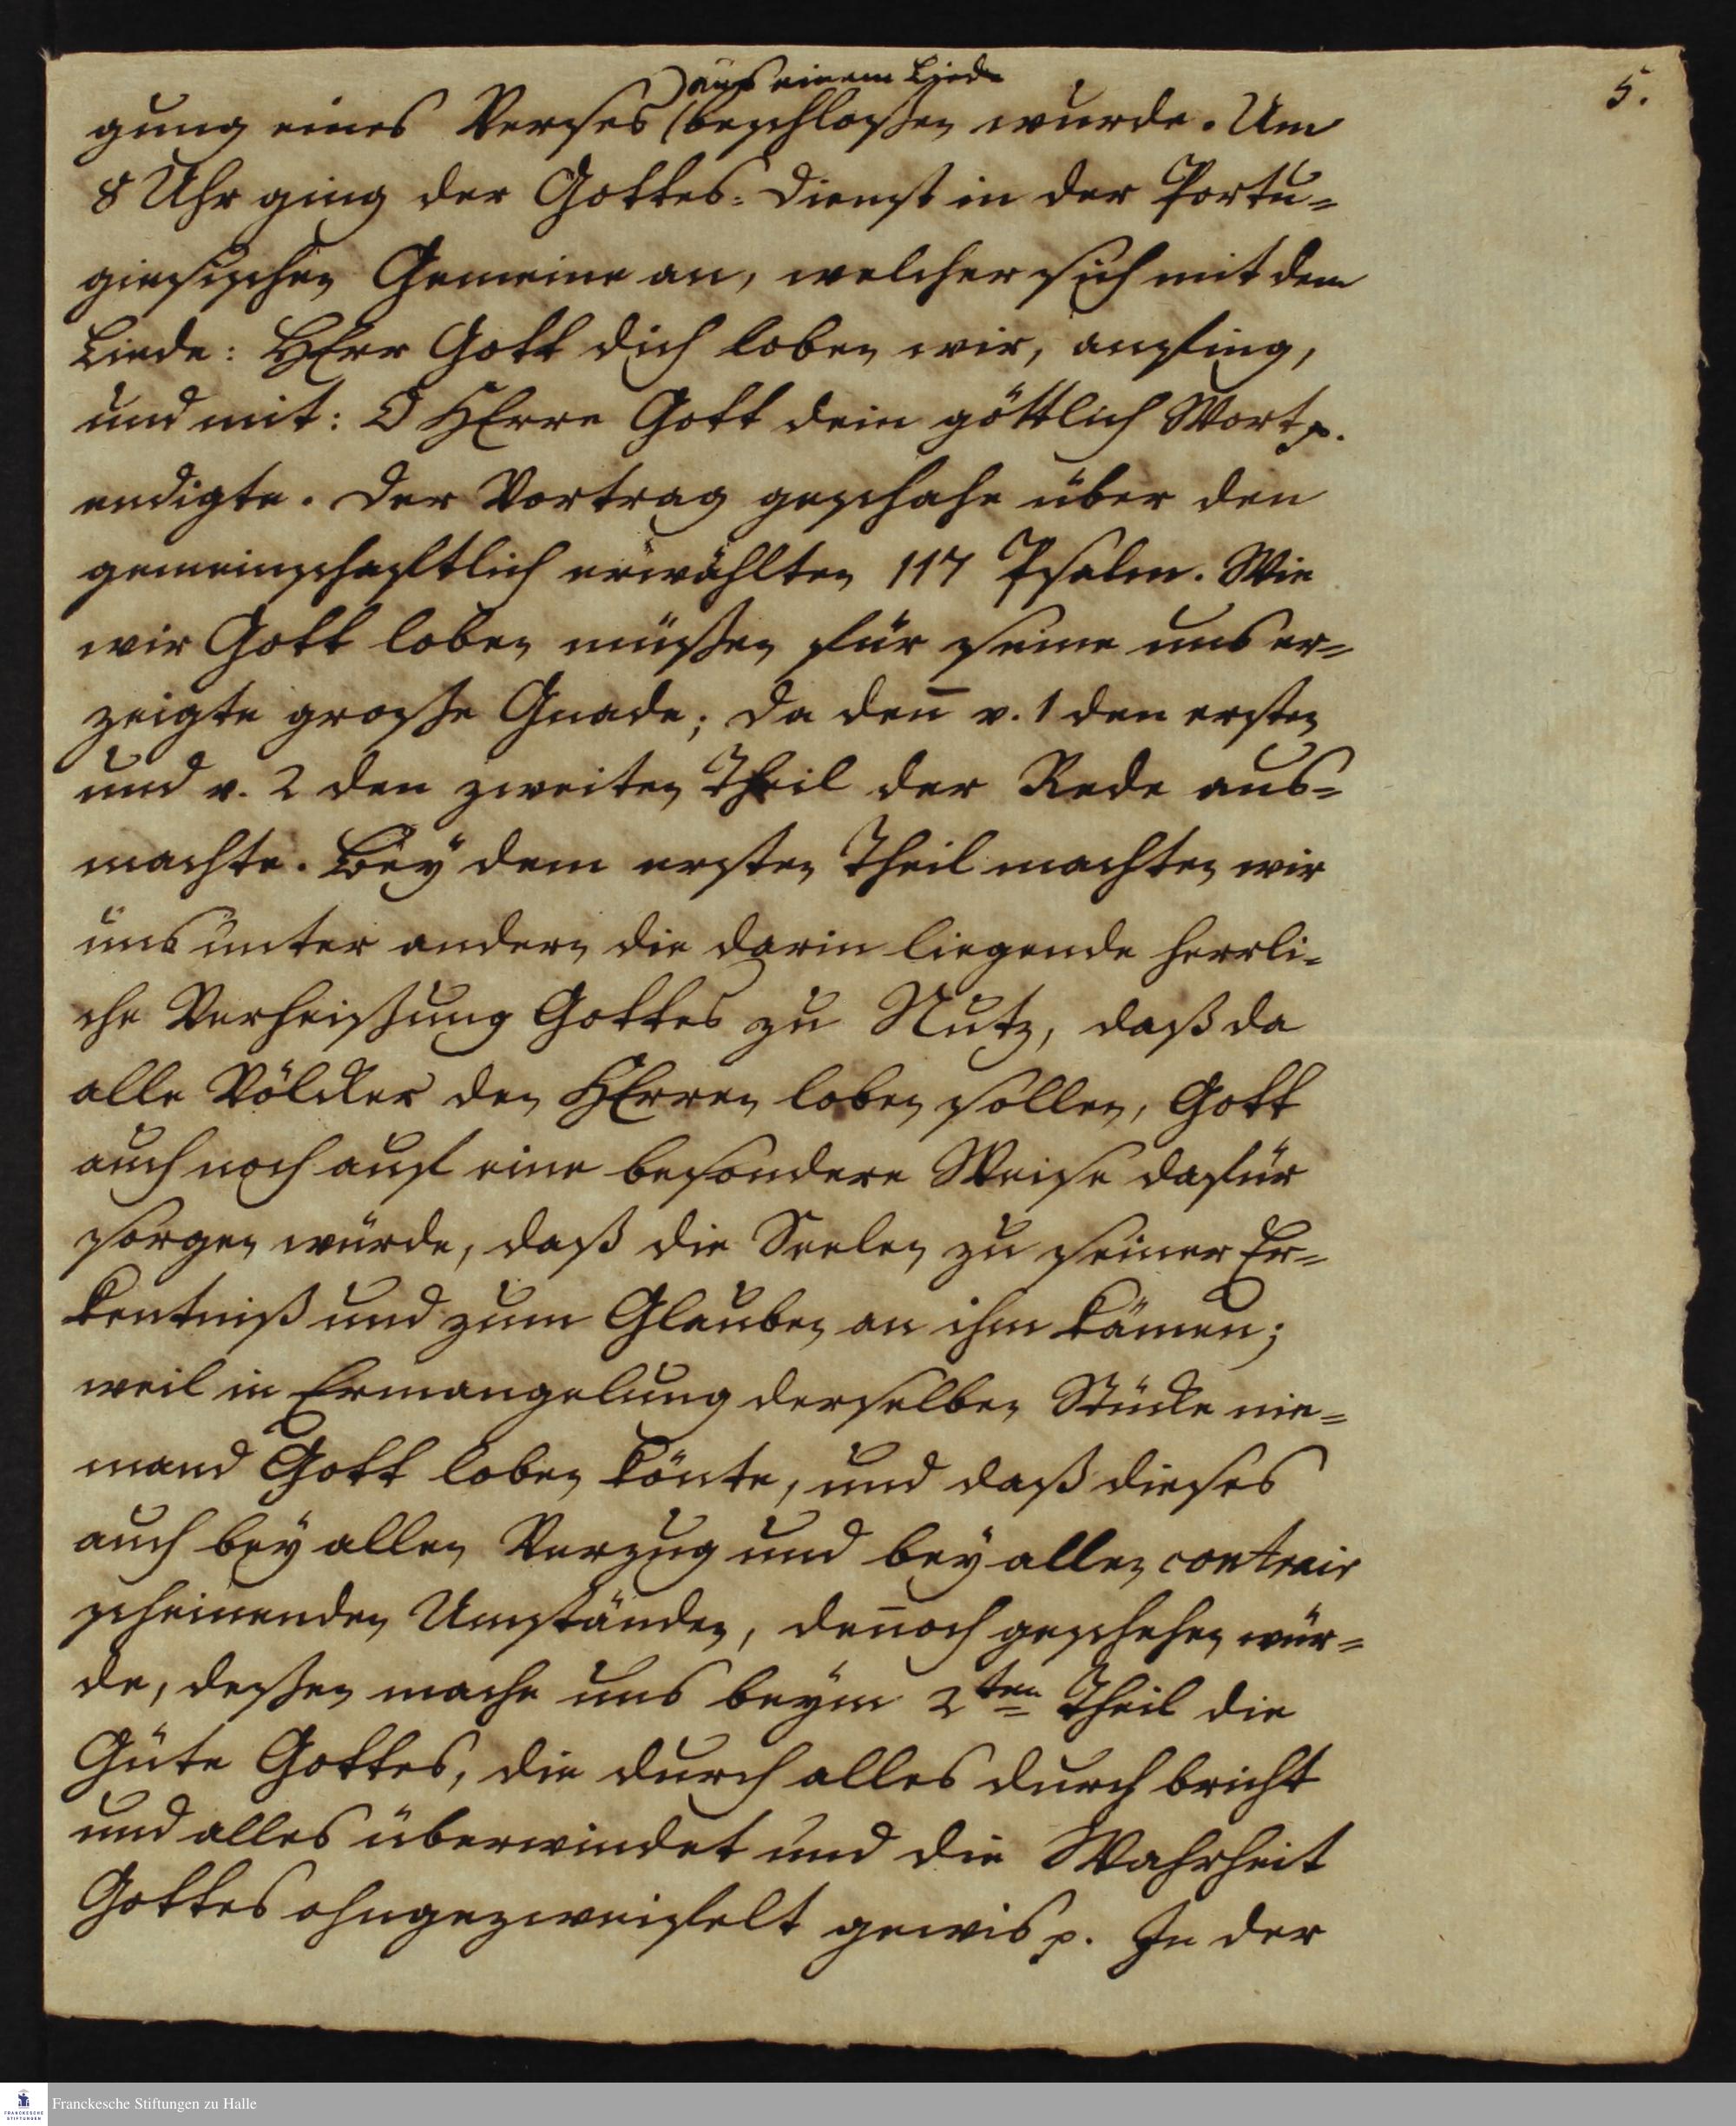 5.
aus einem Liede
gung eines Verses beschloßen wurde. Um
8 Uhr ging der Gottes-Dienst in der Portu=
giesischen Gemeine an, welcher sich mit dem
Liede: HErr Gott dich loben wir, anfing,
und mit: O HErre Gott dein göttlich Wort p.
endigte. Der Vortrag geschahe über den
gemeinschaftlich erwählten 117 Psalm. Wie
wir Gott loben müßen für seine uns er=
zeigte große Gnade; da deñ v. 1 den ersten
und v. 2 den zweiten Theil der Rede aus=
machte. Bey dem ersten Theil machten wir
uns unter andern die darin liegende herrli=
che Verheißung Gottes zu Nutz, daß da
alle Völcker den HErren loben sollen, Gott
auch noch auf eine besondere Weise dafür
sorgen würde, daß die Seelen zu seiner Er=
kentniß und zum Glauben an ihm kämen;
weil in Ermangelung derselben Stücke nie=
mand Gott loben könte, und daß dieses
auch bey allen Verzug und bey allen contrair
scheinenden Umständen, deñoch geschehen wür=
de, deßen mache uns beym 2ten Theil die
Güte Gottes, die durch alles durch bricht
und alles überwindet und die Wahrheit
Gottes ohngezweifelt gewis p. In der
Franckesche Stiftungen zu Halle
FRANCKESCHE
STIFTUNGEN